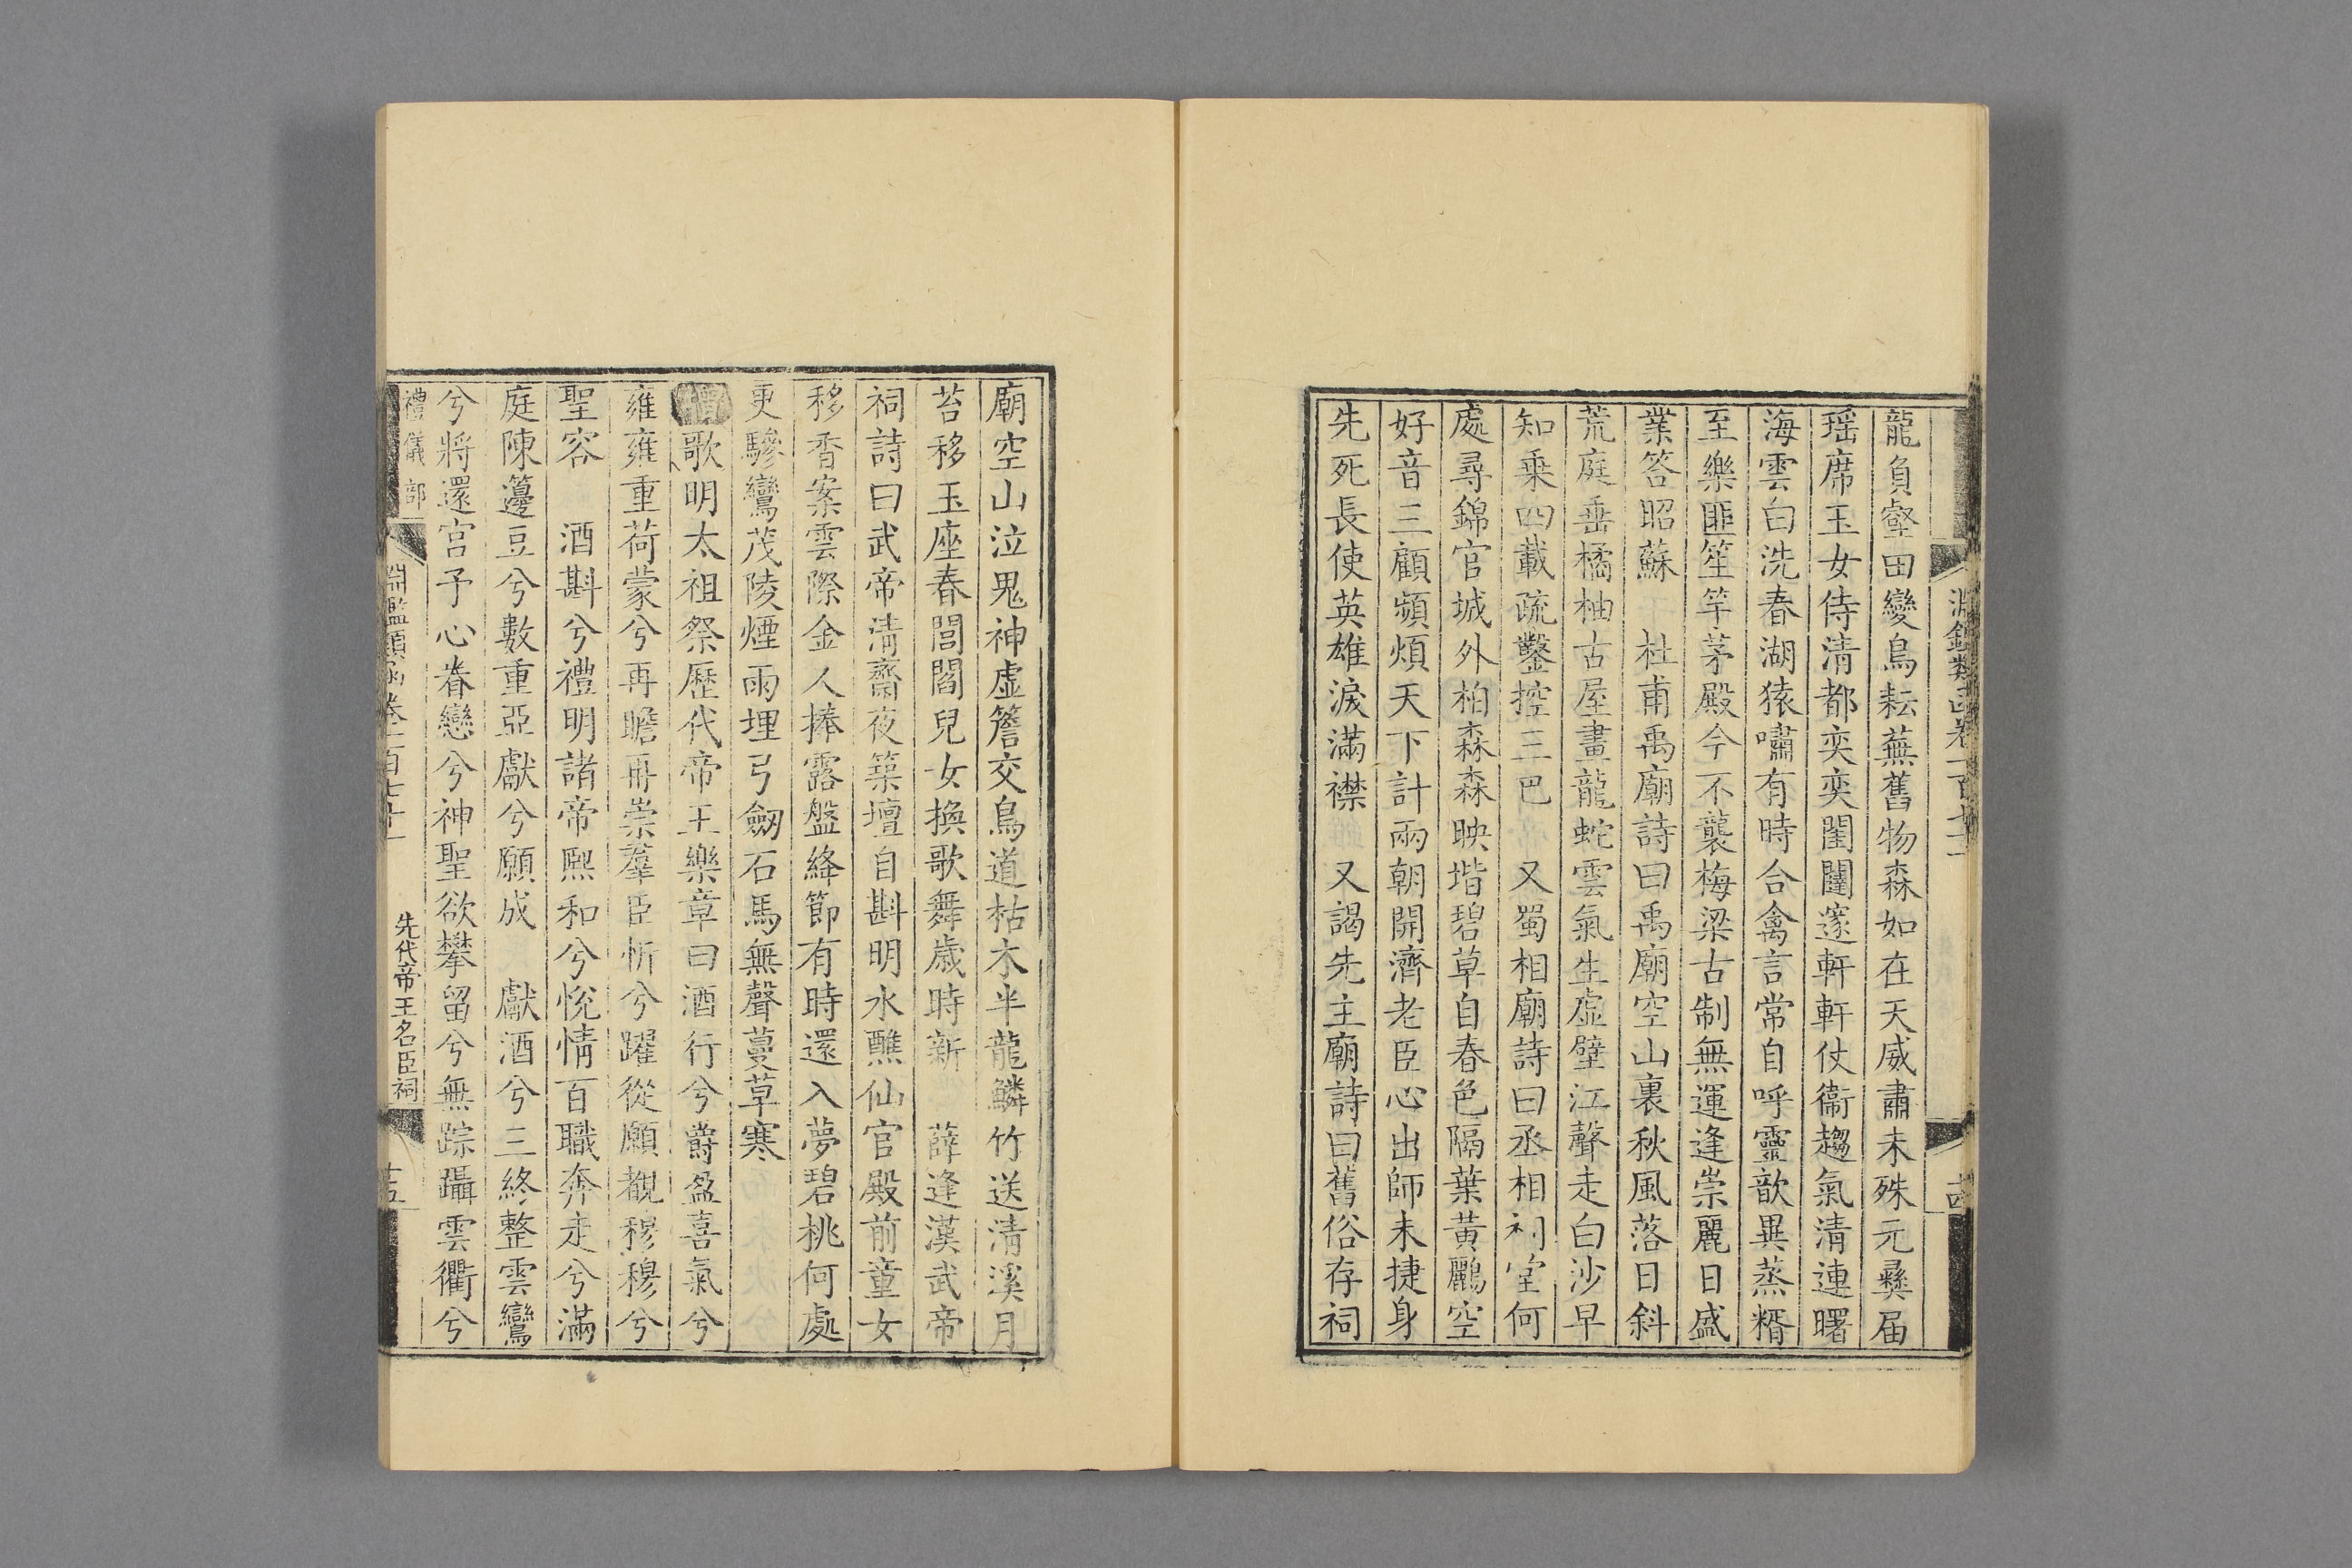 淵鑑類函卷一百七十一
十四
龍負壑田變鳥耘蕪舊物森如在天威肅未殊元彝届
瑶席玉女侍清都奕奕閨闥邃軒軒仗衞趨氣清連曙
海雲白洗春湖猿嘯有時合禽言常自呼靈歆異蒸糈
至樂匪笙竽茅殿今不襲梅梁古制無運逢崇麗日盛
業答昭蘇 杜甫禹廟詩曰禹廟空山裏秋風落日斜
荒庭垂橘柚古屋畫龍蛇雲氣生虛壁江聲走白沙早
知乗四載疏鑿控三巴 又蜀相廟詩曰丞相祠堂何
處尋錦官城外柏森森映堦碧草自春色隔葉黃鸝空
好音三顧頻煩天下計兩朝開濟老臣心出師未捷身
先死長使英雄淚滿襟 又謁先主廟詩曰舊俗存祠
廟空山泣鬼神虛簷交鳥道枯木半龍鱗竹送清溪月
苔移玉座春閭閻兒女換歌舞歲時新 薛逢漢武帝
祠詩曰武帝清齋夜築壇自斟明水醮仙官殿前童女
移香案雲際金人捧露盤絳節有時還入夢碧桃何處
更驂鸞茂陵煙雨埋弓劒石馬無聲蔓草寒
增歌明太祖祭歷代帝王樂章曰酒行兮爵盈喜氣兮
雍雍重荷蒙兮再瞻再崇羣臣忻兮躍從願覩穆穆兮
聖容 酒斟兮禮明諸帝熙和兮悅情百職奔走兮滿
庭陳籩豆兮數重亞獻兮願成 獻酒兮三終整雲鸞
兮將還宮予心眷戀兮神聖欲攀留兮無踪躡雲衢兮
禮儀部
淵鑑類函卷一百七十一
先代帝王名臣祠
十五